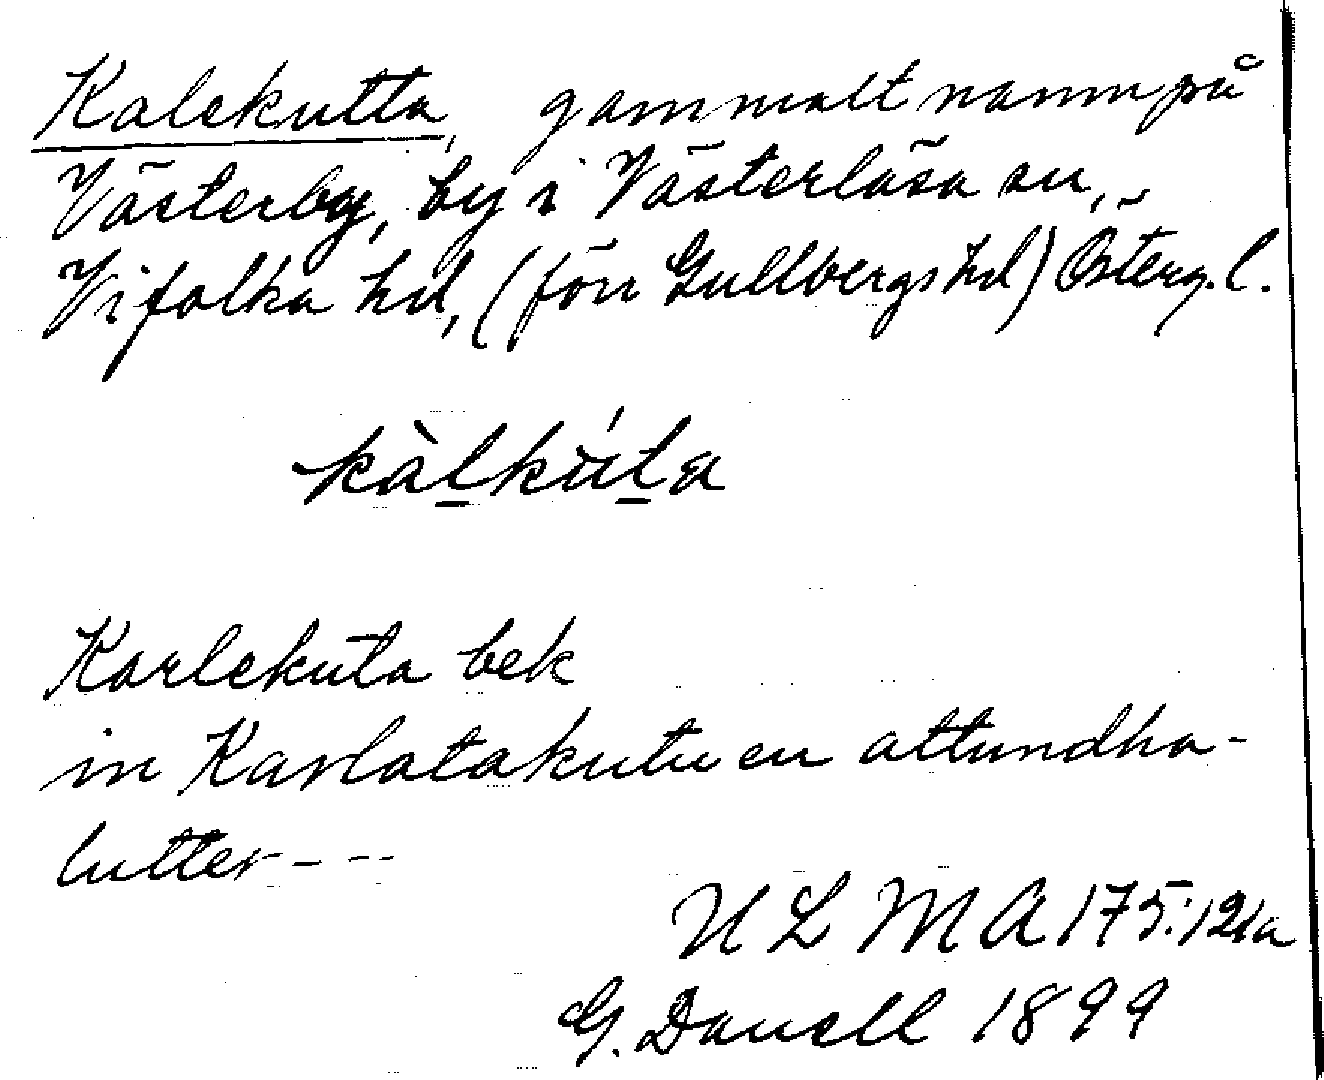 Kalekutta, gammalt namn på
Västerby, by i Västerlösa sn,
Vifolka hd, (förr Gullbergs hd) Österg. l.
kàlkúta
Karlekuta bek
in Karlatakutu en attundha-
lutter - - -
ULMA 175:121a
G. Danell 1899